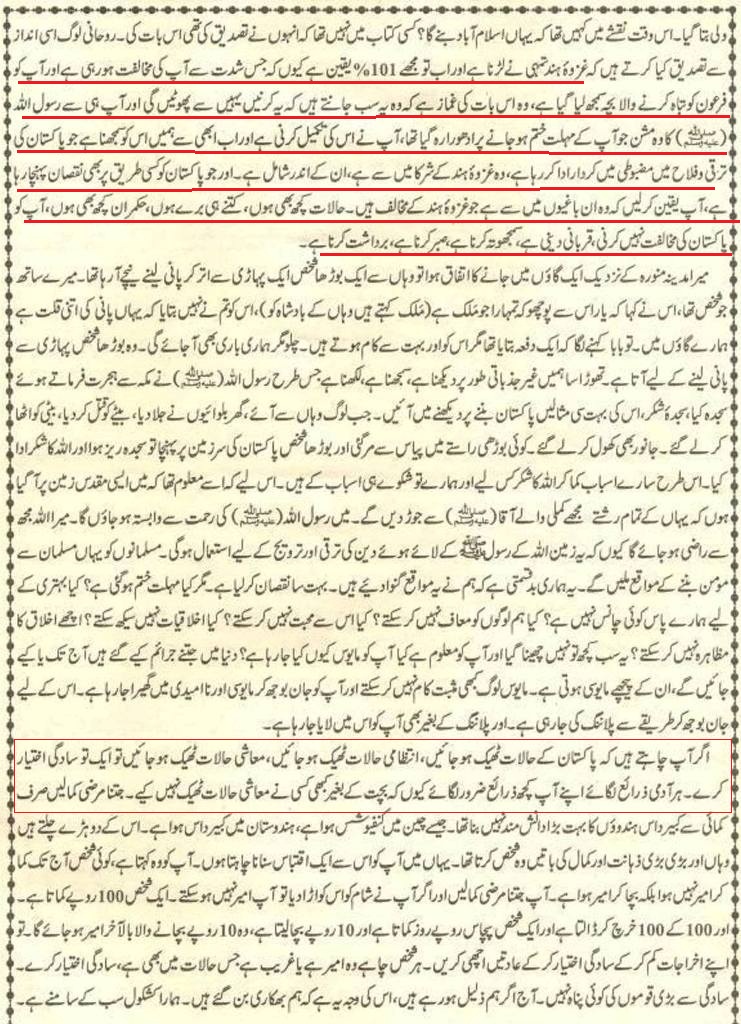 ولی بتا گیا۔ اس وقت نقشے میں کہیں تھا کہ یہاں اسلام آباد بنے گا؟ کسی کتاب میں نہیں تھا کہ انہوں نے تصدیق کی تھی اس بات کی۔ روحانی لوگ اسی انداز
سے تصدیق کیا کرتے ہیں کہ غزوۂ ہند تمہی نے لڑنا ہے اور اب تو مجھے 101% یقین ہے کیوں کہ جس شدت سے آپ کی مخالفت ہو رہی ہے اور آپ کو
فرعون کو تباہ کرنے والا بچہ سمجھ لیا گیا ہے، وہ اس بات کی غماز ہے کہ وہ یہ سب جانتے ہیں کہ یہ کرنیں یہیں سے پھوٹیں گی اور آپ ہی سے رسول اللہ
(ﷺ) کا وہ مشن جو آپ کے مہلت ختم ہو جانے پر ادھورا رہ گیا تھا، آپ نے اس کی تکمیل کرنی ہے اور اب ابھی سے ہمیں اس کو سمجھنا ہے جو پاکستان کی
ترقی و فلاح میں مضبوطی میں کردار ادا کر رہا ہے، وہ غزوۂ ہند کے شرکا میں سے ہے، ان کے اندر شامل ہے۔ اور جو پاکستان کو کسی طریق پر بھی نقصان پہنچا رہا
ہے، آپ یقین کر لیں کہ وہ ان باغیوں میں سے ہے جو غزوۂ ہند کے مخالف ہیں۔ حالات کچھ بھی ہوں، کتنے ہی برے ہوں، حکمران کچھ بھی ہوں، آپ کو
پاکستان کی مخالفت نہیں کرنی، قربانی دینی ہے، سمجھوتہ کرنا ہے، صبر کرنا ہے، برداشت کرنا ہے۔
میرا مدینہ منورہ کے نزدیک ایک گاؤں میں جانے کا اتفاق ہوا تو وہاں سے ایک بوڑھا شخص ایک پہاڑی سے اتر کر پانی لینے نیچے آ رہا تھا۔ میرے ساتھ
جو شخص تھا، اس نے کہا کہ یار اس سے پوچھو کہ تمہارا جو مَلک ہے (مَلک کہتے ہیں وہاں کے بادشاہ کو)، اس کو تم نے نہیں بتایا کہ یہاں پانی کی اتنی قلت ہے
ہمارے گاؤں میں۔ تو بابا کہنے لگا کہ ایک دفعہ بتایا تھا مگر اس کو اور بہت سے کام ہوتے ہیں۔ چلو مگر ہماری باری بھی آ جائے گی۔ وہ بوڑھا شخص پہاڑی سے
پانی لینے کے لیے آتا ہے۔ تھوڑا سا ہمیں غیر جذباتی طور پر دیکھنا ہے، سمجھنا ہے، لکھنا ہے جس طرح رسول اللہ (ﷺ) نے مکہ سے ہجرت فرماتے ہوئے
سجدہ کیا، سجدۂ شکر، اس کی بہت سی مثالیں پاکستان بننے پر دیکھنے میں آئیں۔ جب لوگ وہاں سے آئے، گھر بلوائیوں نے جلا دیا، بیٹے کو قتل کر دیا، بیٹی کو اٹھا
کر لے گئے۔ جانور بھی کھول کر لے گئے۔ کوئی بوڑھی راستے میں پیاس سے مر گئی اور بوڑھا شخص پاکستان کی سرزمین پر پہنچا تو سجدہ ریز ہوا اور اللہ کا شکر ادا
کیا۔ اس طرح سارے اسباب کما کر اللہ کا شکر کس لیے اور ہمارے تو شکوے ہی اسباب کے ہیں۔ اس لیے کہ اسے معلوم تھا کہ میں ایسی مقدس زمین پر آ گیا
ہوں کہ یہاں کے تمام رشتے مجھے کملی والے آقا (ﷺ) سے جوڑ دیں گے۔ میں رسول اللہ (ﷺ) کی رحمت سے وابستہ ہو جاؤں گا۔ میرا اللہ مجھ
سے راضی ہو جائے گا کیوں کہ یہ زمین اللہ کے رسول ﷺ کے لائے ہوئے دین کی ترقی اور ترویج کے لیے استعمال ہوگی۔ مسلمانوں کو یہاں مسلمان سے
مومن بننے کے مواقع ملیں گے۔ یہ ہماری بد قسمتی ہے کہ ہم نے یہ مواقع گنوا دیے ہیں۔ بہت سا نقصان کر لیا ہے۔ مگر کیا مہلت ختم ہوگئی ہے؟ کیا بہتری کے
لیے ہمارے پاس کوئی چانس نہیں ہے؟ کیا ہم لوگوں کو معاف نہیں کر سکتے؟ کیا اس سے محبت نہیں کر سکتے؟ کیا اخلاقیات نہیں سیکھ سکتے؟ اچھے اخلاق کا
مظاہرہ نہیں کر سکتے؟ یہ سب کچھ تو نہیں چھینا گیا اور آپ کو معلوم ہے کیا آپ کو مایوس کیوں کیا جا رہا ہے؟ دنیا میں جتنے جرائم کیے گئے ہیں آج تک یا کیے
جائیں گے، ان کے پیچھے مایوسی ہوتی ہے۔ مایوس لوگ بھی مثبت کام نہیں کر سکتے اور آپ کو جان بوجھ کر مایوسی اور نا امیدی میں گھیرا جا رہا ہے۔ اس کے لیے
جان بوجھ کر طریقے سے پلاننگ کی جا رہی ہے۔ اور پلاننگ کے بغیر بھی آپ کو اس میں لایا جا رہا ہے۔
اگر آپ چاہتے ہیں کہ پاکستان کے حالات ٹھیک ہو جائیں، انتظامی حالات ٹھیک ہو جائیں، معاشی حالات ٹھیک ہو جائیں تو ایک تو سادگی اختیار
کرے۔ ہر آدمی ذرائع لگائے اپنے آپ کچھ ذرائع ضرور لگائے کیوں کہ بچت کے بغیر کبھی کسی نے معاشی حالات ٹھیک نہیں کیے۔ جتنا مرضی کمالیں صرف
کمائی سے کبیر داس ہندوؤں کا بہت بڑا دانش مند نہیں بنا تھا۔ جیسے چین میں کنفیوشس ہوا ہے، ہندوستان میں کبیر داس ہوا ہے۔ اس کے دوہڑے چلتے ہیں
وہاں اور بڑی بڑی ذہانت اور کمال کی باتیں وہ شخص کرتا تھا۔ یہاں میں آپ کو اس سے ایک اقتباس سنانا چاہتا ہوں۔ آپ کو وہ کہتا ہے، کوئی شخص آج تک کما
کر امیر نہیں ہوا بلکہ بچا کر امیر ہوا ہے۔ آپ جتنا مرضی کمالیں اور اگر آپ نے شام کو اس کو اڑا دیا تو آپ امیر نہیں ہو سکتے۔ ایک شخص 100 روپے کماتا ہے۔
اور 100 کے 100 خرچ کر ڈالتا ہے اور ایک شخص پچاس روپے روز کماتا ہے اور 10 روپے بچا لیتا ہے، وہ 10 روپے بچانے والا بالآخر امیر ہو جائے گا۔ تو
اپنے اخراجات کم کر کے سادگی اختیار کر کے عادتیں اچھی کریں۔ ہر شخص چاہے وہ امیر ہے یا غریب ہے جس حالات میں بھی ہے، سادگی اختیار کرے۔
سادگی سے بڑی قوموں کی کوئی پناہ نہیں۔ آج اگر ہم ذلیل ہو رہے ہیں، اس کی وجہ یہ ہے کہ ہم بھکاری بن گئے ہیں۔ ہمارا کشکول سب کے سامنے ہے۔